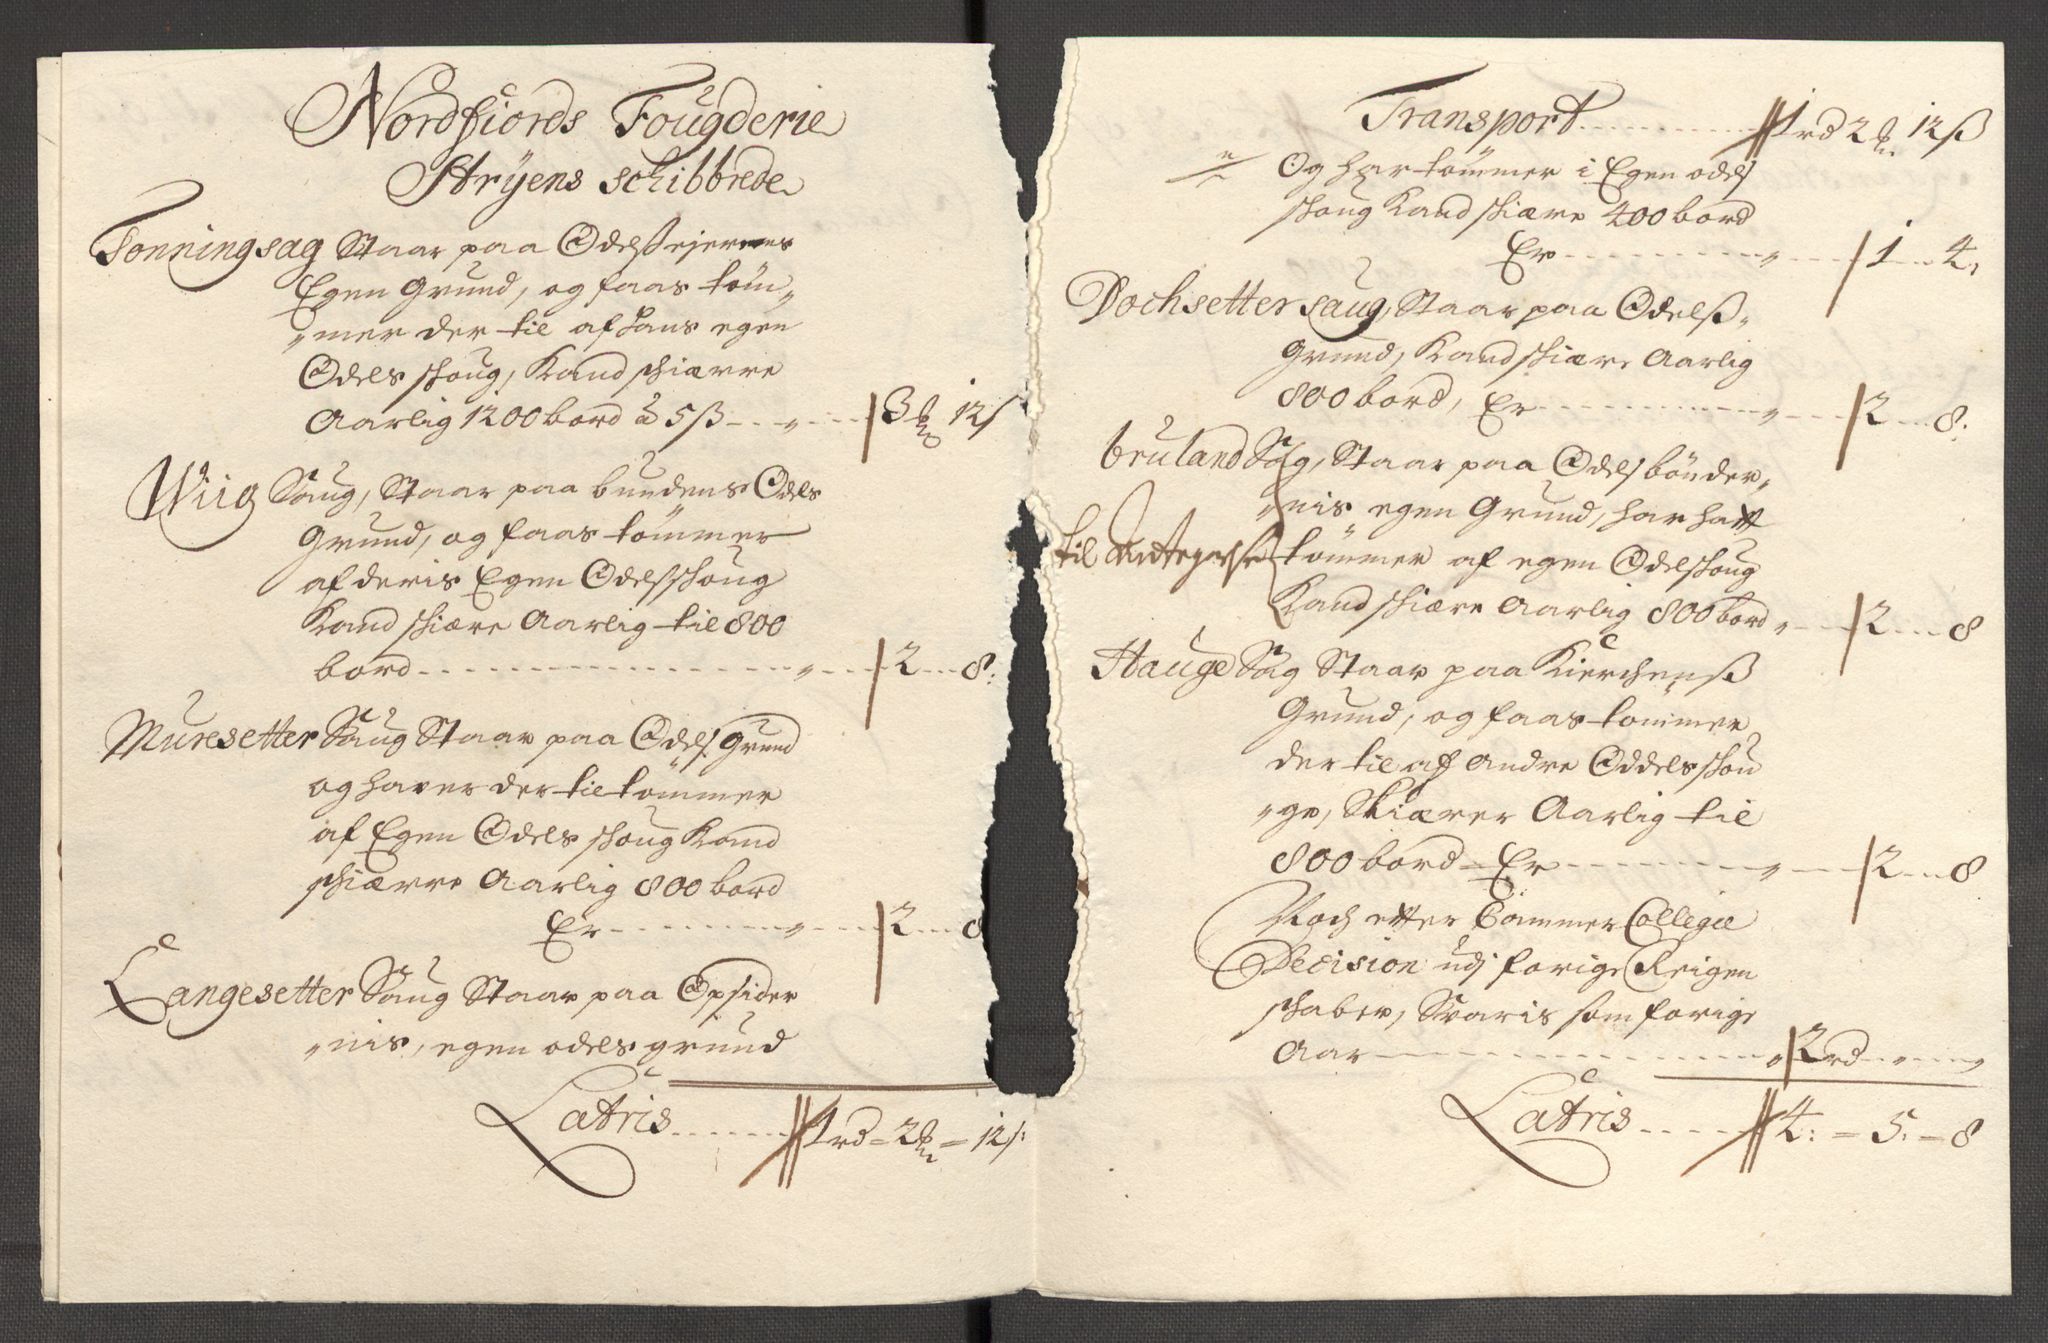 Nordfiords Fougderie
Stryens schibbrede
Tonningsag Staar paa Odelsejernes
Egen Grund, og faas töm„
„mer der til af hans egen
Odels skoug, Kand skiærre
Aarlig 1200 bord â 5 ß 3 12 ß
Wiig Saug, Staar paa bundens Odels
Grund, og faas tömmer
af deris Egen Odelsskoug
Kand skiære Aarlig til 800
bord 2 8:
Muresetter Saug Staar paa Odels grund
og haver der til tömmer
af Egen Odels skoug Kand
skiærre Aarlig 800 bord
Er 2 8
Langesetter Saug Staar paa Opsider
„nis, egen odels grund
Latris 1 rd = 2 = 12 ß:
Transport 1 rd 2 12 ß
Og har tömmer i Egen odels
skoug Kand skiære 400 bord
Er 1 4:
Dochsetter saug, Staar paa Odelß„
Grund, Kand skiære Aarlig
800 bord, Er 2 8:
bruland Sag, Staar paa Odelsbönder„
„nis egen Grund, har hatt
til Antegnelse tömmer af egen Odelskoug
Kand skiære Aarlig 800 bord 2 8
Hauge Sag Staar paa Kierchenß
Grund, og faas tömmer
der til aff andre Oddels skou
„ge, Skiærer Aarlig til
800 bord = Er 2 8
Noch etter Cammer Collegie
Decision udj forige Reigen
skaber, Svaris som forige
Aar 2 rd
Latris 4: = 5: = 8